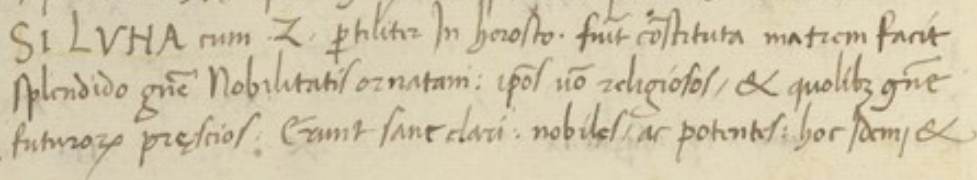 SI LVNA cum .Z. ꝑtiliter In horosco. fuīt cōstituta matrem facit
splendido gn̄e Nobilitatis ornatam: ip̄os u̅o religiosos, & quolibꝫ gn̄e
futuroꝝ pręscios. Erunt sane clari: nobiles, ac potentes: hoc Idem, &